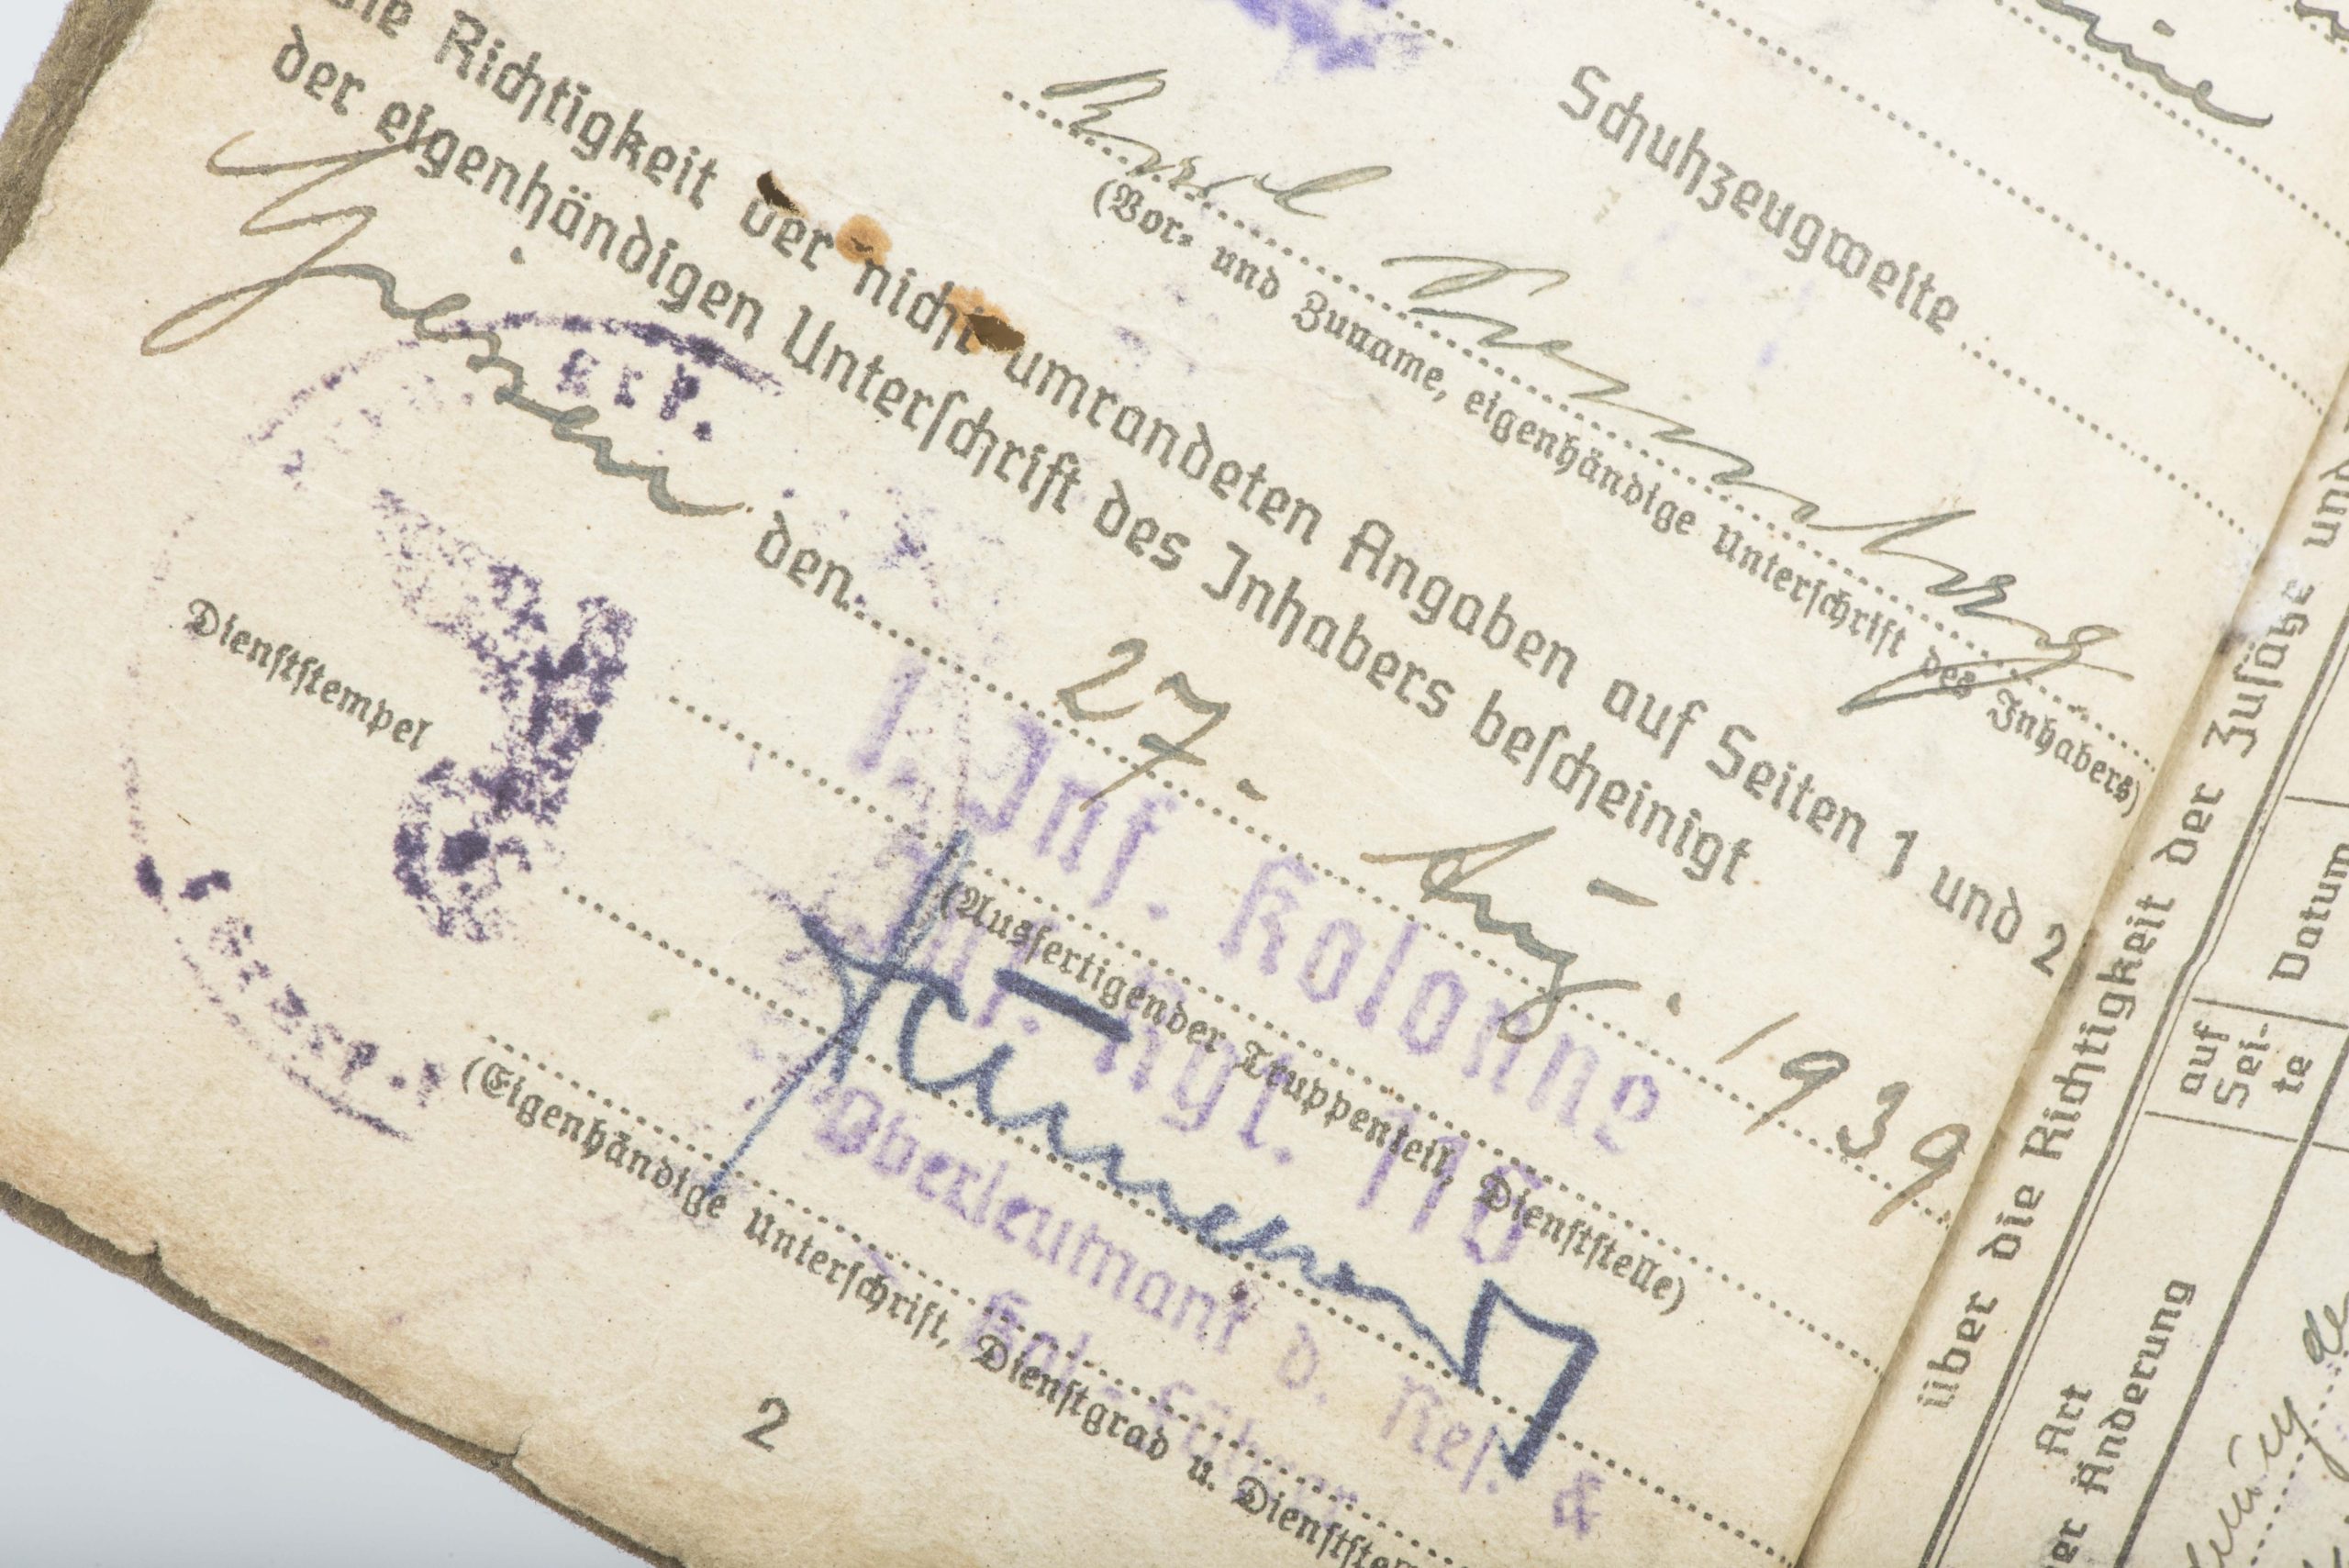 Schuhzeugweite
Karl
(Vor- und Zuname, eigenhändige Unterschrift des Inhabers)
die Richtigkeit der nicht umrandeten Angaben auf Seiten 1 und 2
der eigenhändigen Unterschrift des Inhabers bescheinigt
Giessen den 27. Aug. 1939
l. Inf. Kolonne
Inf. Rgt. 116
(Ausfertigender Truppenteil, Dienststelle)
Dienststempel
Oberleutnant d. Res. &
Kol. Führer
(Eigenhändige Unterschrift, Dienstgrad u. Dienststel
2
über die Richtigkeit der Zusätze und
Art
er Änderung
auf
Sei-
te
Datum